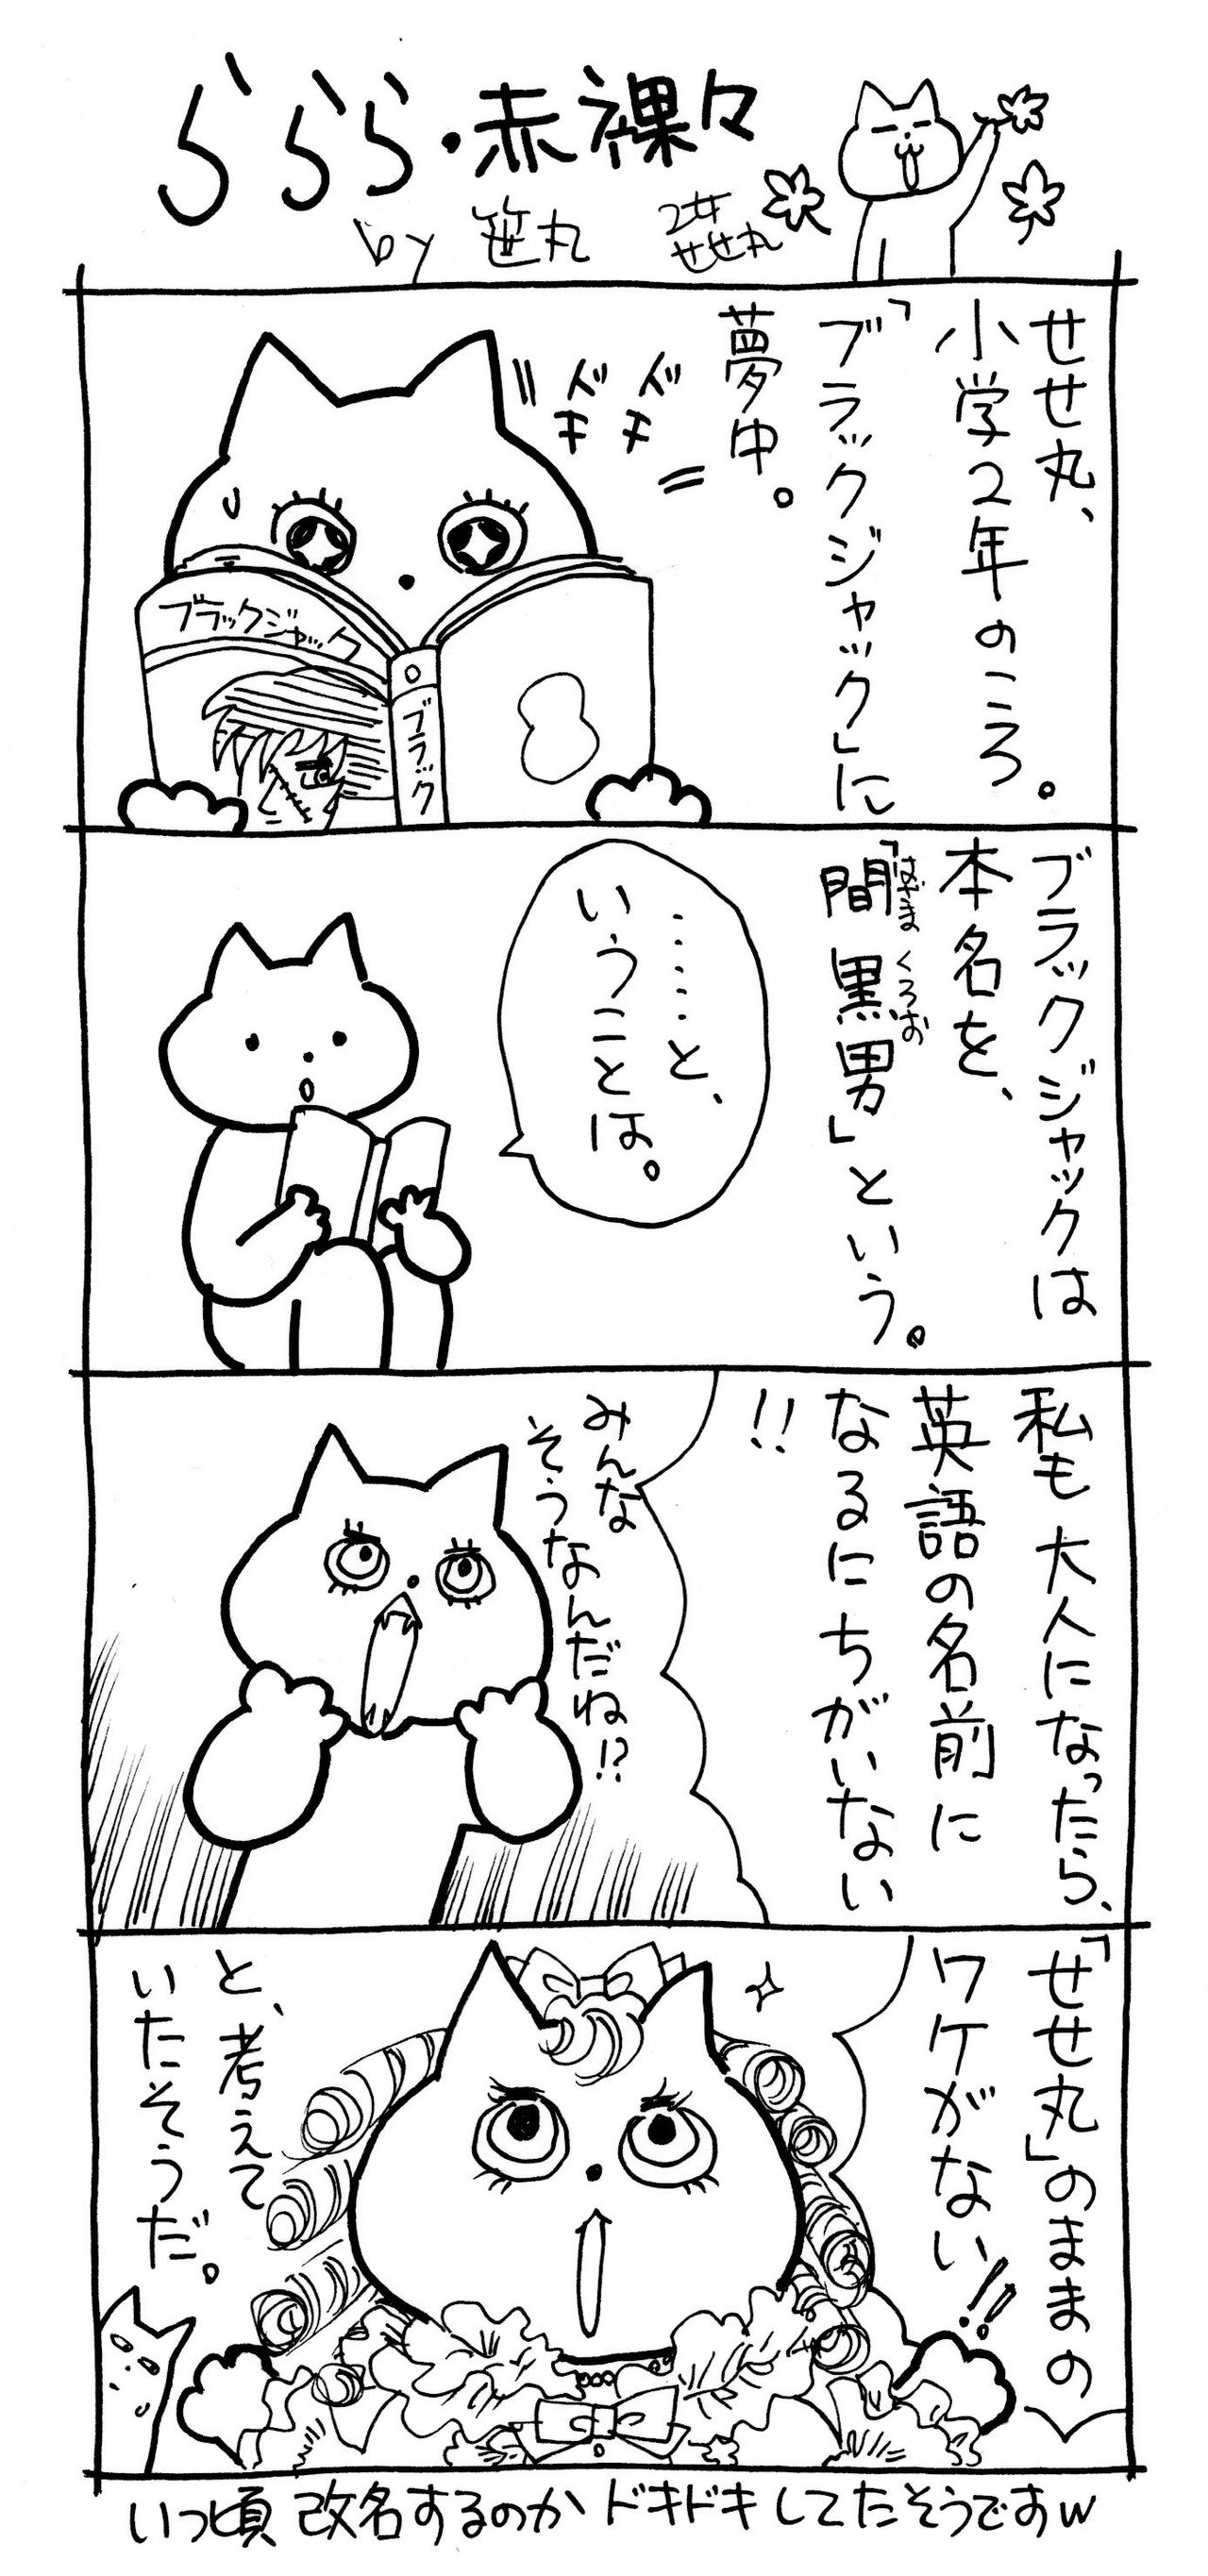 ららら・赤裸々
by 笹丸 せせ丸
せせ丸、
小学2年のころ。
「ブラックジャック」に
夢中。
ドキ
ドキ
ブラックジャック
ブラック
ブラックジャックは
本名を、
「間 黒男」という。
はざま くろお
……と、
いうことは。
私も大人になったら、
英語の名前に
なるにちがいない
!!
みんな
そうなんだね!?
「せせ丸」のままの
ワケがない!!
と、考えて
いたそうだ。
いつ頃 改名するのか ドキドキしてたそうですw